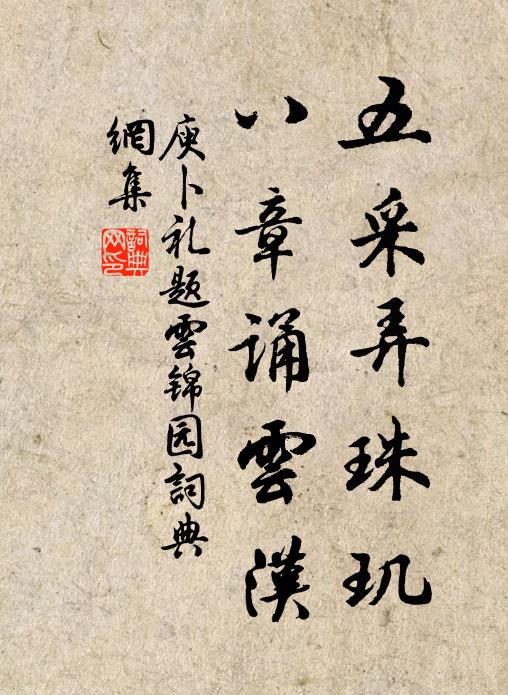 五采弄珠玑
八章诵雲漢
庾卜礼题雲锦园詞典
網集
詞典
网印